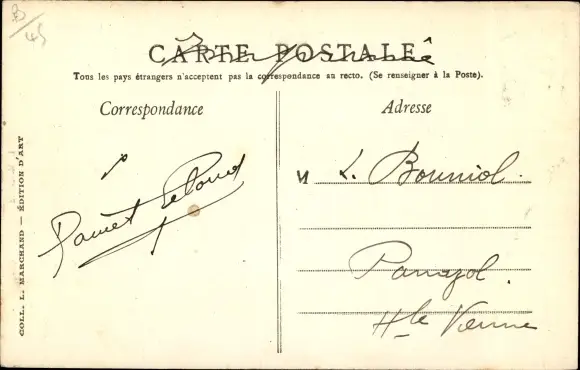 B/45
CARTE POSTALE
Tous les pays étrangers n'acceptent pas la correspondance au recto. (Se renseigner à la Poste).
Correspondance
Adresse
COLL. L. MARCHAND — ÉDITION D'ART
M L. Bouniol.
Panazol.
Hte Vienne